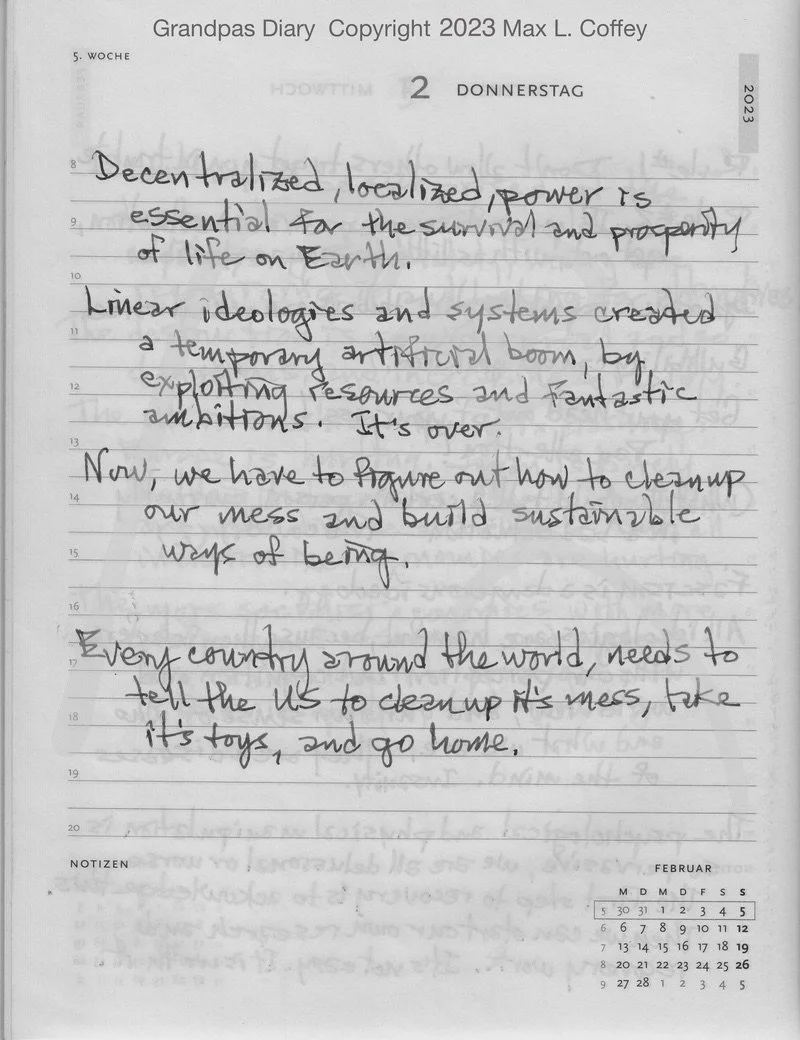 Grandpas Diary Copyright 2023 Max L. Coffey
5. WOCHE
2 DONNERSTAG
2023
8 Decentralized, localized, power is
9 essential for the survival and prosperity
of life on Earth.
10
Linear ideologies and systems created
11 a temporary artificial boom, by
12 exploiting resources and fantastic
ambitions. It's over.
13
Now, we have to figure out how to cleanup
14 our mess and build sustainable
15 ways of being.
16
17 Every country around the world, needs to
tell the US to cleanup it's mess, take
18 it's toys, and go home.
19
20
NOTIZEN
FEBRUAR
M D M D F S S
5 30 31 1 2 3 4 5
6 6 7 8 9 10 11 12
7 13 14 15 16 17 18 19
8 20 21 22 23 24 25 26
9 27 28 1 2 3 4 5